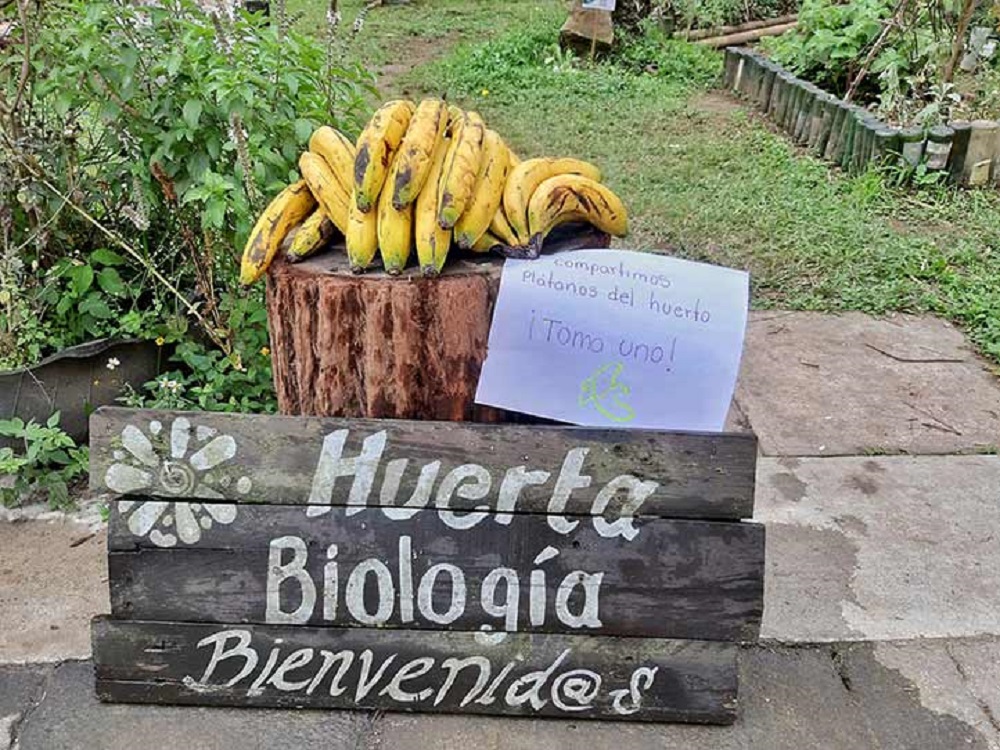 compartimos
Plátanos del huerto
¡Toma uno!
Huerta
Biología
Bienvenid@s